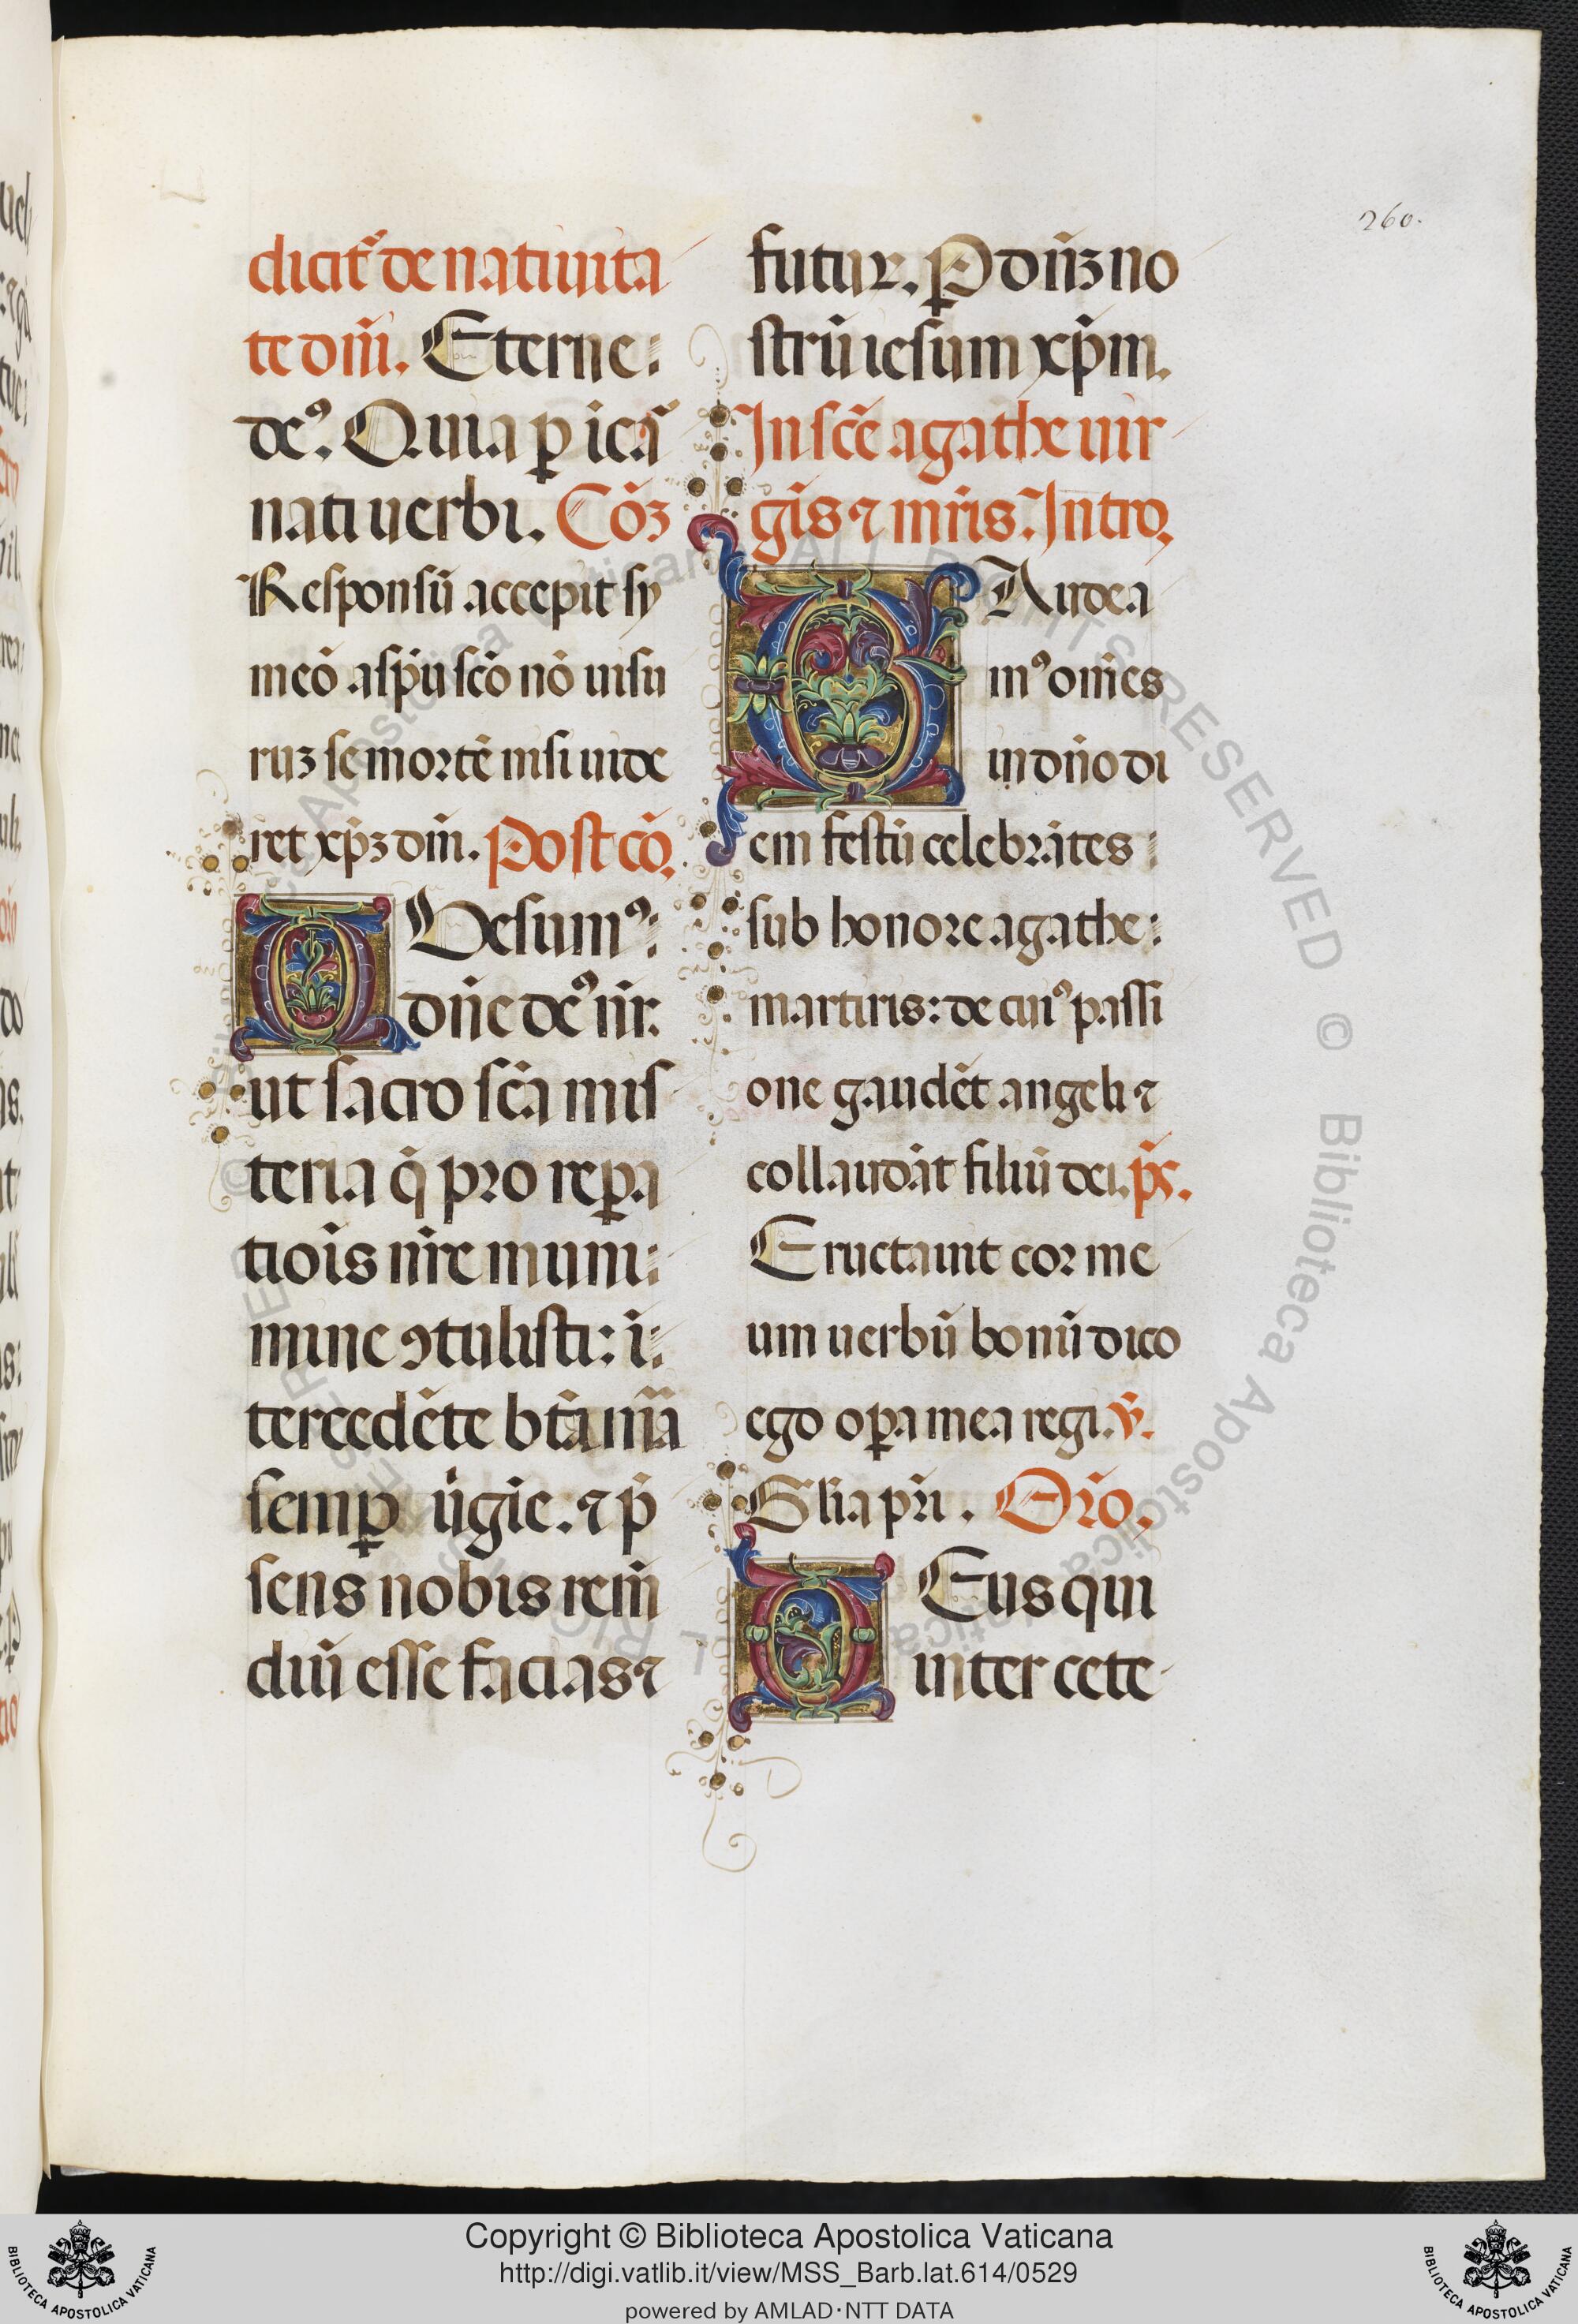 260.
dicit᷑ de natiuita
te dn̄i. Eterne
de᷒. Quia ꝑ icar̄
nati uerbi. Cōꝫ
Responsū accepit sy
meō a sp̄u scō nō uisu
ruꝫ se mortē nisi uide
ret xp̄ꝫ dn̄i. Post cō.
QUesum᷒
dn̄e de᷒ nr̄.
ut sacro scā mis
teria q̄ pro reꝑa
tiōis nr̄e muni
mine ꝯtulisti: ī
tercedēte btā mr̄ia
semꝑ uĩgie. ⁊ p̄
sens nobis reme
diū esse facias ⁊
futuꝝ. P dn̄ꝫ no
strū iesum xp̄m.
In scē agathe uir
gīs ⁊ mr̄is. Intro.
GAudea
m᷒ om̄es
in dn̄o di
em festū celebrātes
sub honore agathe
martiris: de cui᷒ passi
one gaudēt angeli ⁊
collaudāt filiū dei. p̄s.
Eructauit cor me
um uerbū bonū dico
ego oꝑa mea regi. v̄.
Gl̄ia pr̄i. Or̄o.
DEus qui
inter cete
Copyright © Biblioteca Apostolica Vaticana
http://digi.vatlib.it/view/MSS_Barb.lat.614/0529
powered by AMLAD·NTT DATA
BIBLIOTECA APOSTOLICA VATICANA
BIBLIOTECA APOSTOLICA VATICANA